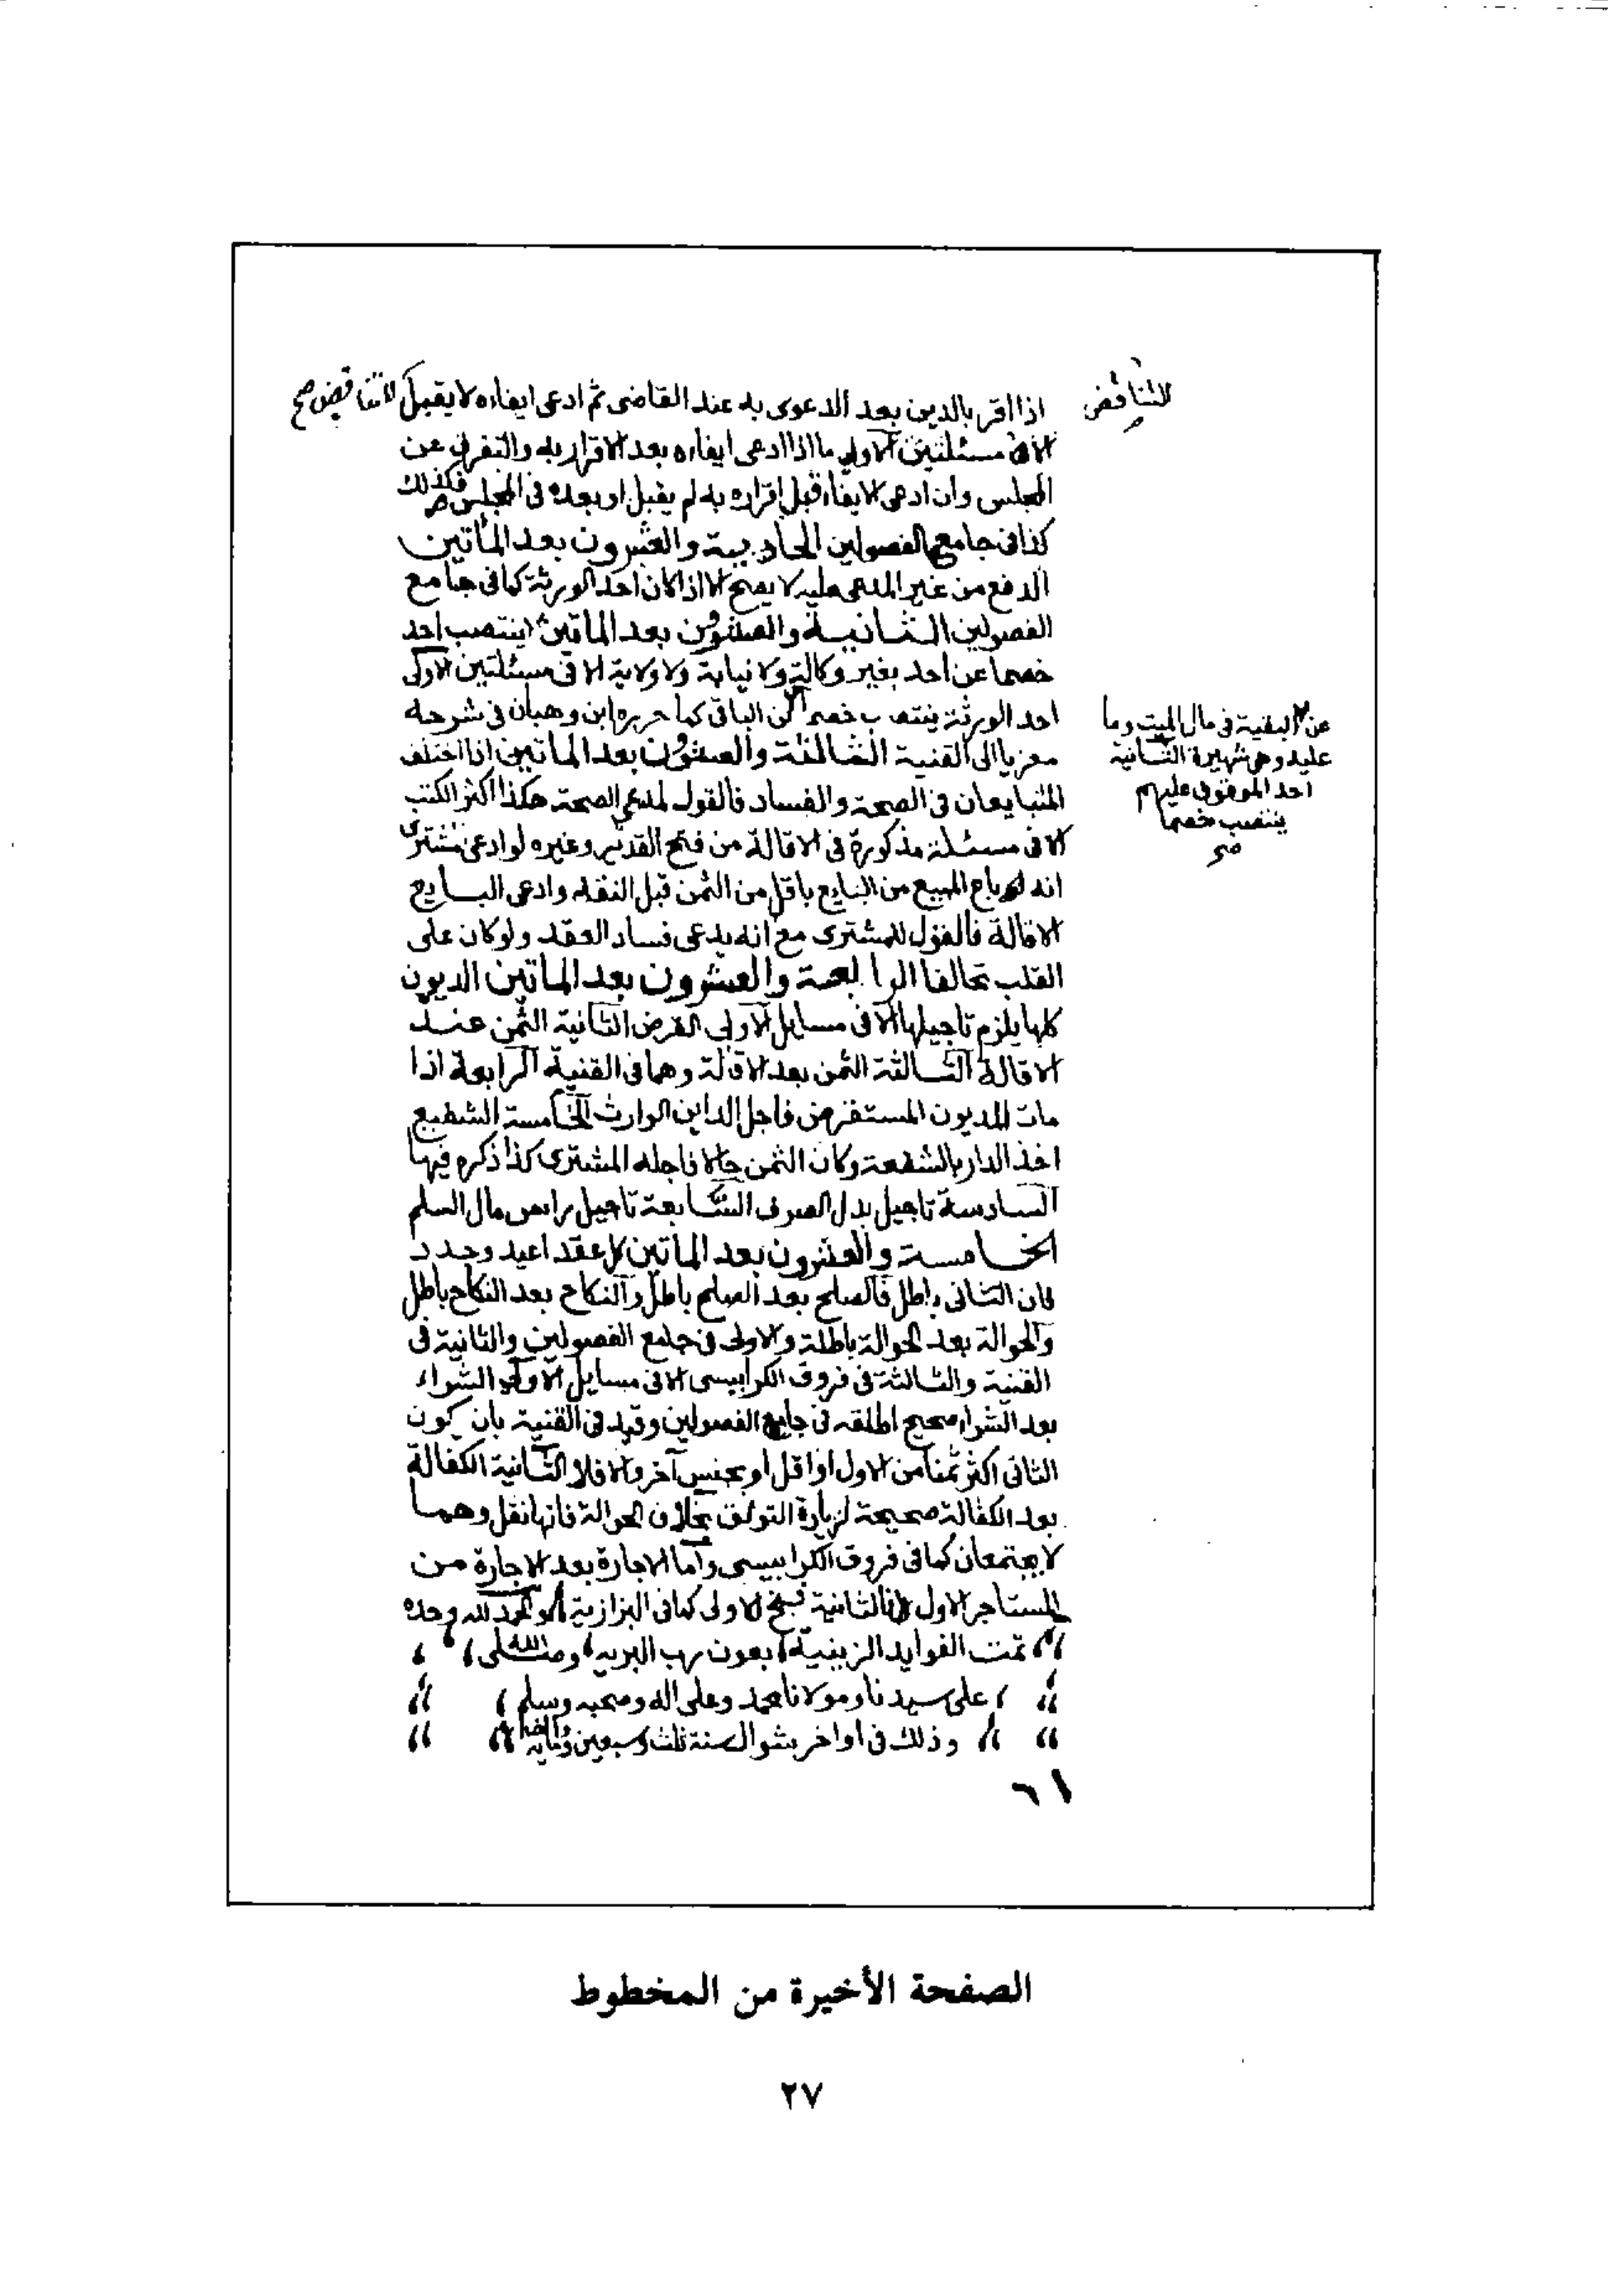 اذا اقر بالدين بعد الدعوى به عند القاضى ثم ادعى ايفاءه لا يقبل للتناقض صح
للتناقض
الا فى مسئلتين الاولى ما اذا ادعى ايفاءه بعد الاقرار به والتفرق عن
المجلس وان ادعى الايفاء قبل اقراره به لم يقبل او بعده فى المجلس فكذلك
كذا فى جامع الفصولين الحادية والعشرون بعد المأتين
الدفع من غير المدعى عليه لا يصح الا اذا كان احد الورثة كما فى جامع
الفصولين الثانية والعشرون بعد الماتين لا ينتصب احد
خصما عن احد بغير وكالة ولا نيابة ولا ولاية الا فى مسئلتين الاولى
احد الورثة ينتصب خصما عن الباقى كما حرره ابن وهبان فى شرحه
عن البقية فى مال الميت وما
عليه وهى شهيرة الثانية
احد الموقوف عليهم
ينتصب خصما
صح
معزيا الى القنية الثالثة والعشرون بعد الماتين اذا اختلف
المتبايعان فى الصحة والفساد فالقول لمدعى الصحة هكذا اكثر الكتب
الا فى مسئلة مذكورة فى الاقالة من فتح القدير وغيره لو ادعى مشترى
انه باع المبيع من البايع باقل من الثمن قبل النقد وادعى البايع
الاقالة فالقول للمشترى مع انه يدعى فساد العقد ولو كان على
القلب تحالفا الرابعة والعشرون بعد الماتين الديون
كلها يلزم تاجيلها الا فى مسايل الاولى القرض الثانية الثمن عند
الاقالة الثالثة الثمن بعد الاقالة وهما فى القنية الرابعة اذا
مات المديون المستقرض فاجل الداين الوارث الخامسة الشفيع
اخذ الدار بالشفعة وكان الثمن حالا فاجله المشترى كذا ذكره فيها
السادسة تاجيل بدل الصرف السابعة تاجيل راس مال السلم
الخامسة والعشرون بعد الماتين كل عقد اعيد وجدد
فان الثانى باطل فالصلح بعد الصلح باطل والنكاح بعد النكاح باطل
والحوالة بعد الحوالة باطلة والاولى فى جامع الفصولين والثانية فى
القنية والثالثة فى فروق الكرابيسى الا فى مسايل الاولى الشراء
بعد الشراء صحيح اطلقه فى جامع الفصولين وقيد فى القنية بان كون
الثانى اكثر ثمنا من الاول او اقل او بجنس آخر والا فلا الثانية الكفالة
بعد الكفالة صحيحة لزيادة التوثق بخلاف الحوالة فانها نقل وهما
لا يجتمعان كما فى فروق الكرابيسى واما الاجارة بعد الاجارة من
المستاجر الاول فالثانية فسخ للاولى كما فى البزازية والحمد لله وحده
تمت الفوايد الزينية بعون رب البرية وصلى الله
على سيدنا ومولانا محمد وعلى اله وصحبه وسلم
وذلك فى اواخر شوال سنة ثلث وسبعين
٦١
الصفحة الأخيرة من المخطوط
٢٧